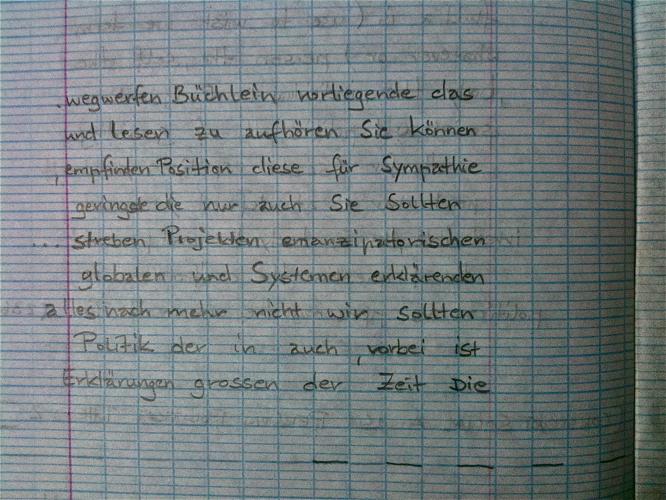 .wegwerfen Büchlein vorliegende das
und lesen zu aufhören Sie können
,empfinden Position diese für Sympathie
geringste die nur auch Sie Sollten
... streben Projekten emanzipatorischen
globalen und Systemen erklärenden
alles nach mehr nicht wir sollten
Politik der in auch ,vorbei ist
Erklärungen grossen der Zeit Die